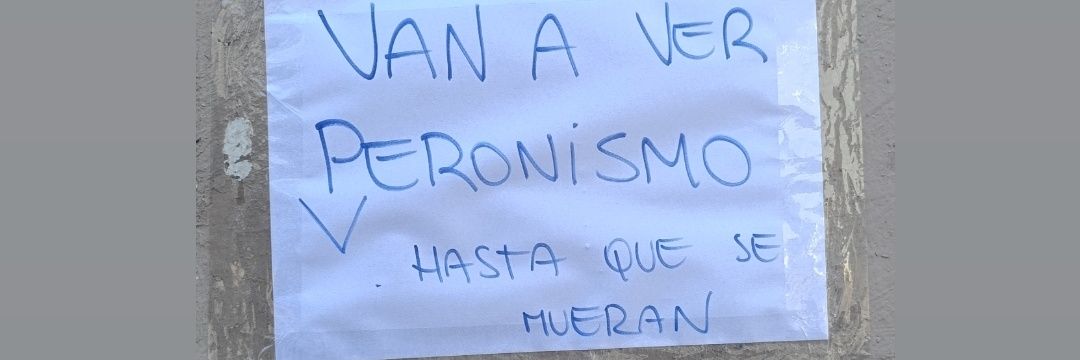 VAN A VER
PERONiSMO
V
. HASTA QUE SE
MUERAN